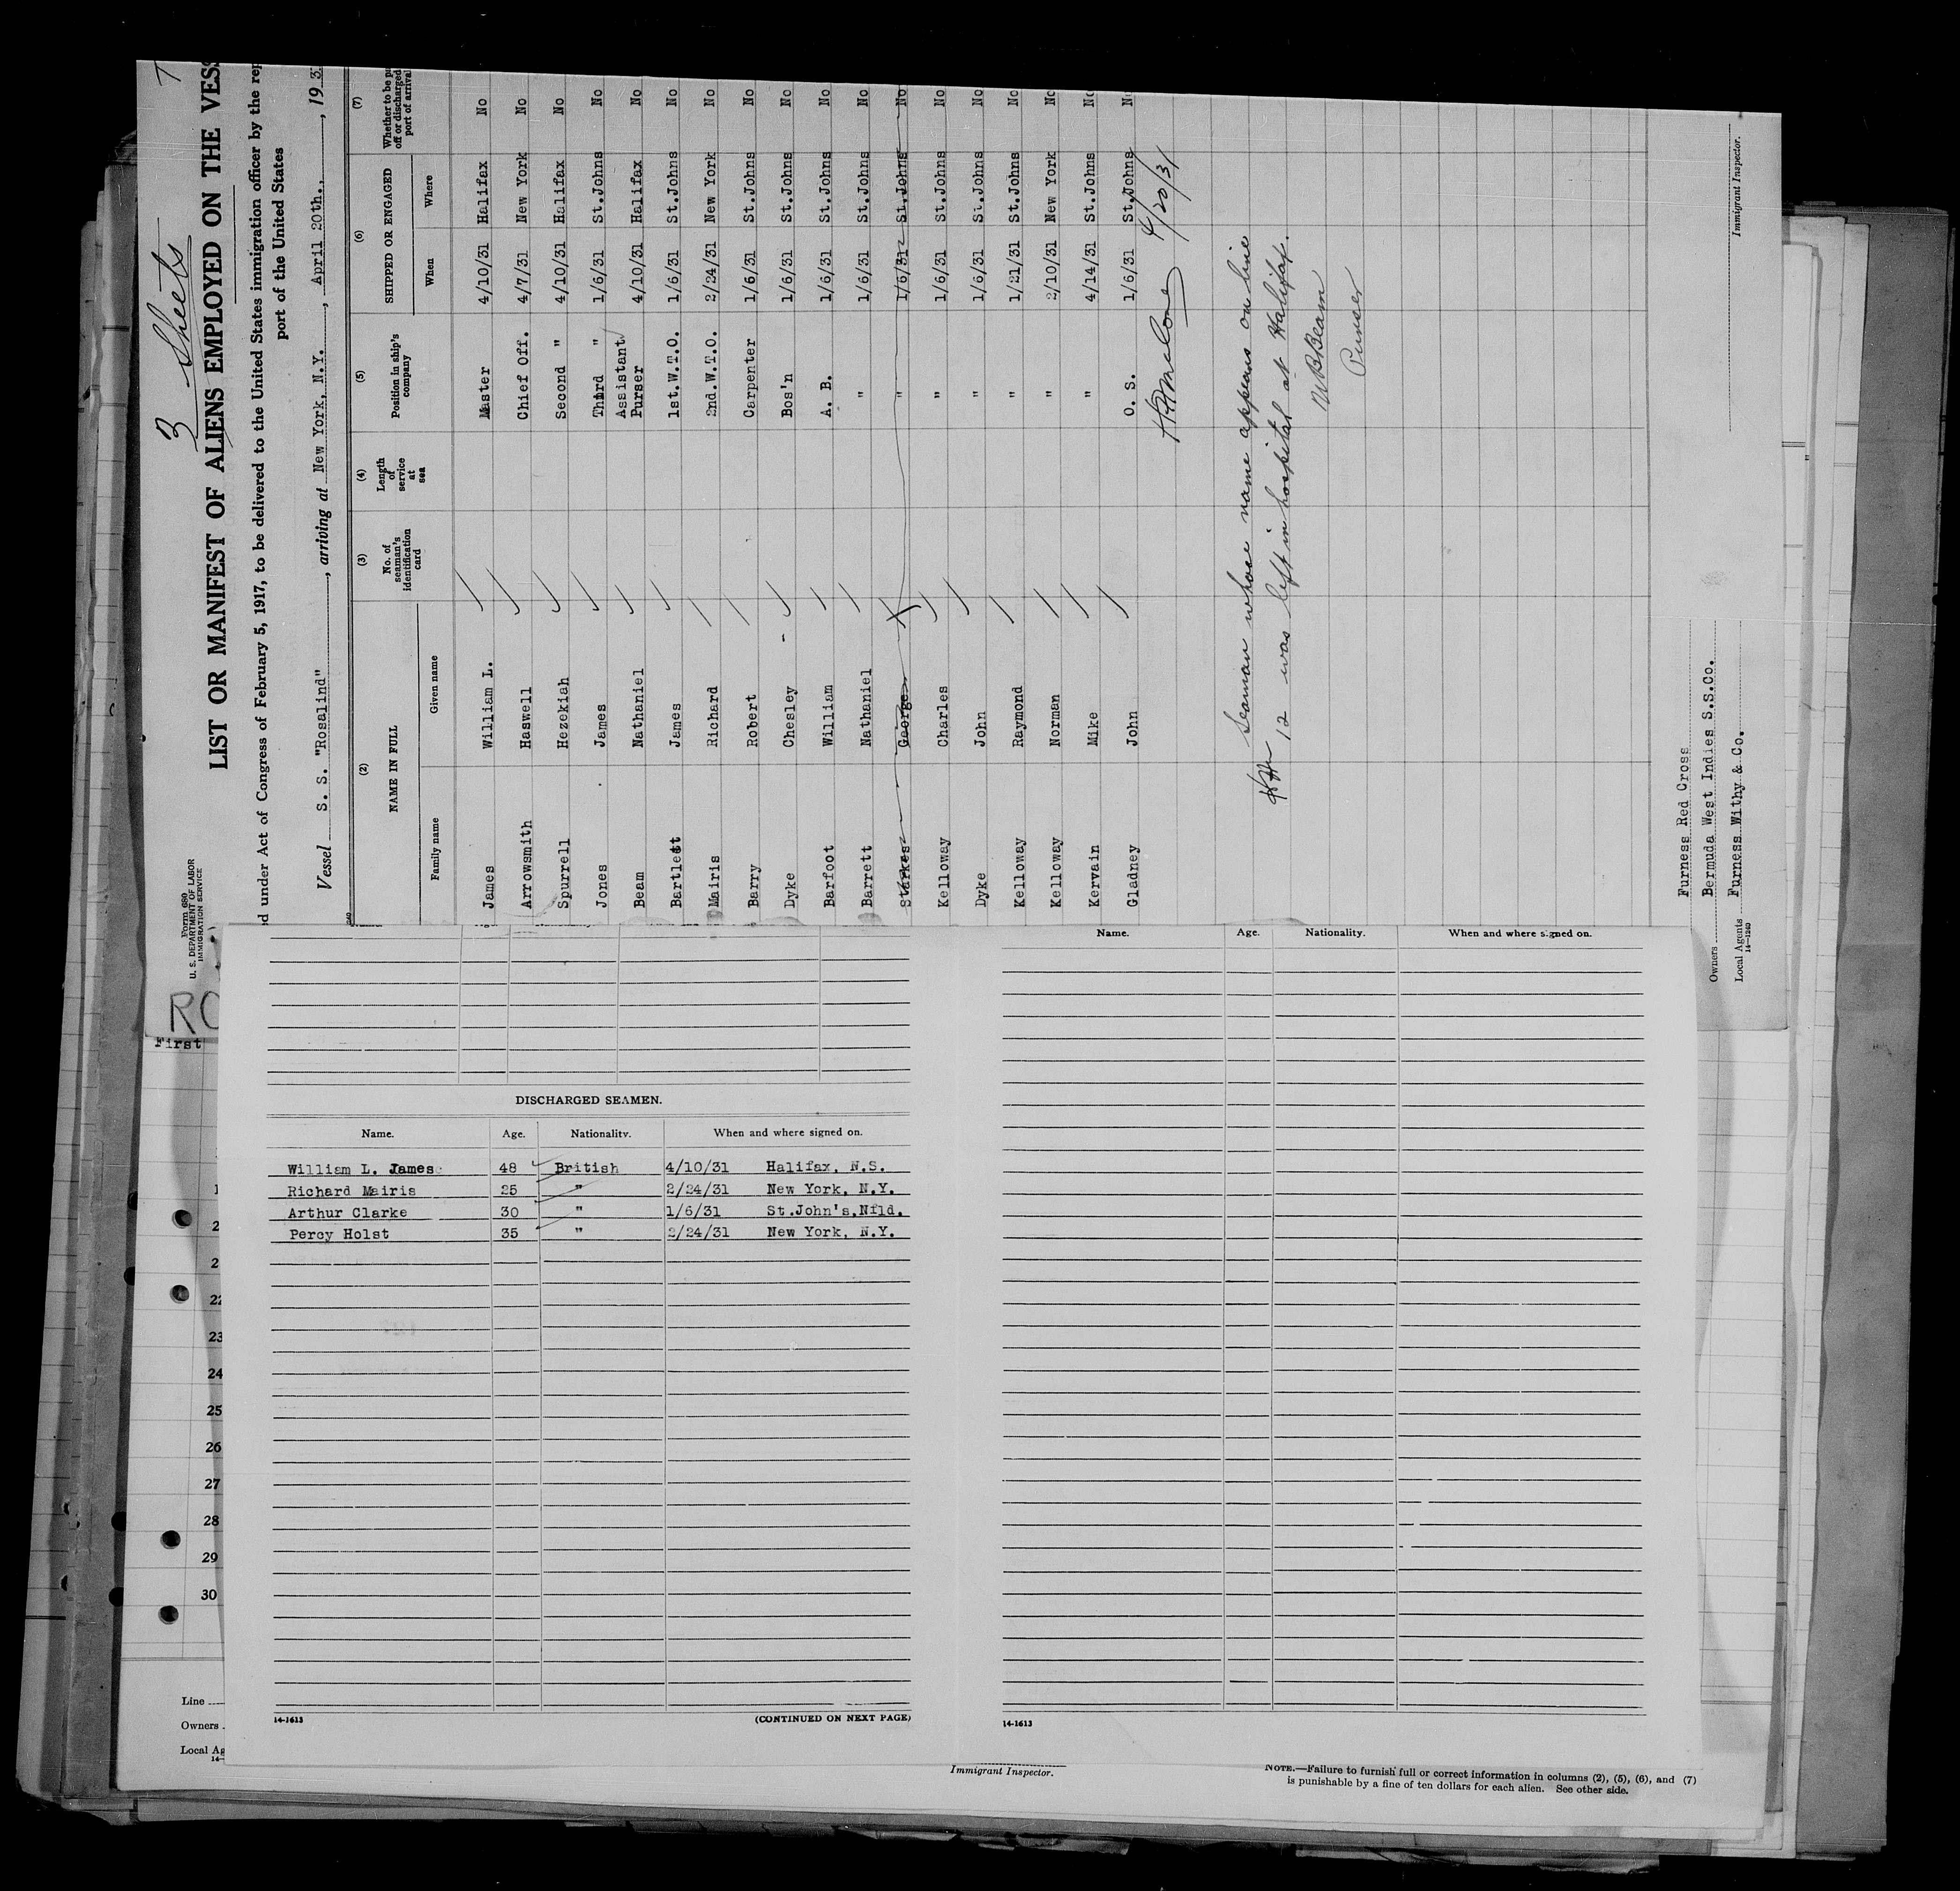 3 Sheets
Form 680
U. S. DEPARTMENT OF LABOR
IMMIGRATION SERVICE
LIST OR MANIFEST OF ALIENS EMPLOYED ON THE VESS
d under Act of Congress of February 5, 1917, to be delivered to the United States immigration officer by the rep
port of the United States
Vessel S. S. "Rosalind", arriving at New York, N.Y., April 20th., 193
(2) (3) (4) (5) (6) (7)
NAME IN FULL No. of seaman's identification card Length of service at sea Position in ship's company SHIPPED OR ENGAGED Whether to be pa off or discharged port of arrival
Family name Given name When Where
James William L. Master 4/10/31 Halifax No
Arrowsmith Haswell Chief Off. 4/7/31 New York No
Spurrell Hezekiah Second " 4/10/31 Halifax No
Jones James Third " 1/6/31 St.Johns No
Beam Nathaniel Assistant Purser 4/10/31 Halifax No
Bartlett James 1st.W.T.O. 1/6/31 St.Johns No
Mairis Richard 2nd.W.T.O. 2/24/31 New York No
Barry Robert Carpenter 1/6/31 St.Johns No
Dyke Chesley Bos'n 1/6/31 St.Johns No
Barfoot William A. B. 1/6/31 St.Johns No
Barrett Nathaniel " 1/6/31 St.Johns No
Starkes George " 1/6/31 St.Johns No
Kelloway Charles " 1/6/31 St.Johns No
Dyke John " 1/6/31 St.Johns No
Kelloway Raymond " 1/21/31 St.Johns No
Kelloway Norman " 2/10/31 New York No
Kervain Mike " 4/14/31 St.Johns No
Gladney John O. S. 1/6/31 St.Johns No
4/20/31
Seaman whose name appears on line
12 was left in hospital at Halifax.
N B Beam
Purser
Furness Red Cross
Owners Bermuda West Indies S.S.Co.
Local Agents Furness Withy & Co.
14—1240
Immigrant Inspector.
RO
First
DISCHARGED SEAMEN.
Name. Age. Nationality. When and where signed on.
William L. James 48 British 4/10/31 Halifax, N.S.
Richard Mairis 25 " 2/24/31 New York, N.Y.
Arthur Clarke 30 " 1/6/31 St.John's,Nfld.
Percy Holst 35 " 2/24/31 New York, N.Y.
14-1613 (CONTINUED ON NEXT PAGE)
Name. Age. Nationality. When and where signed on.
14-1613
1
2
2
22
23
24
25
26
27
28
29
30
Line
Owners
Local Ag
14—
Immigrant Inspector.
NOTE.—Failure to furnish full or correct information in columns (2), (5), (6), and (7)
is punishable by a fine of ten dollars for each alien. See other side.